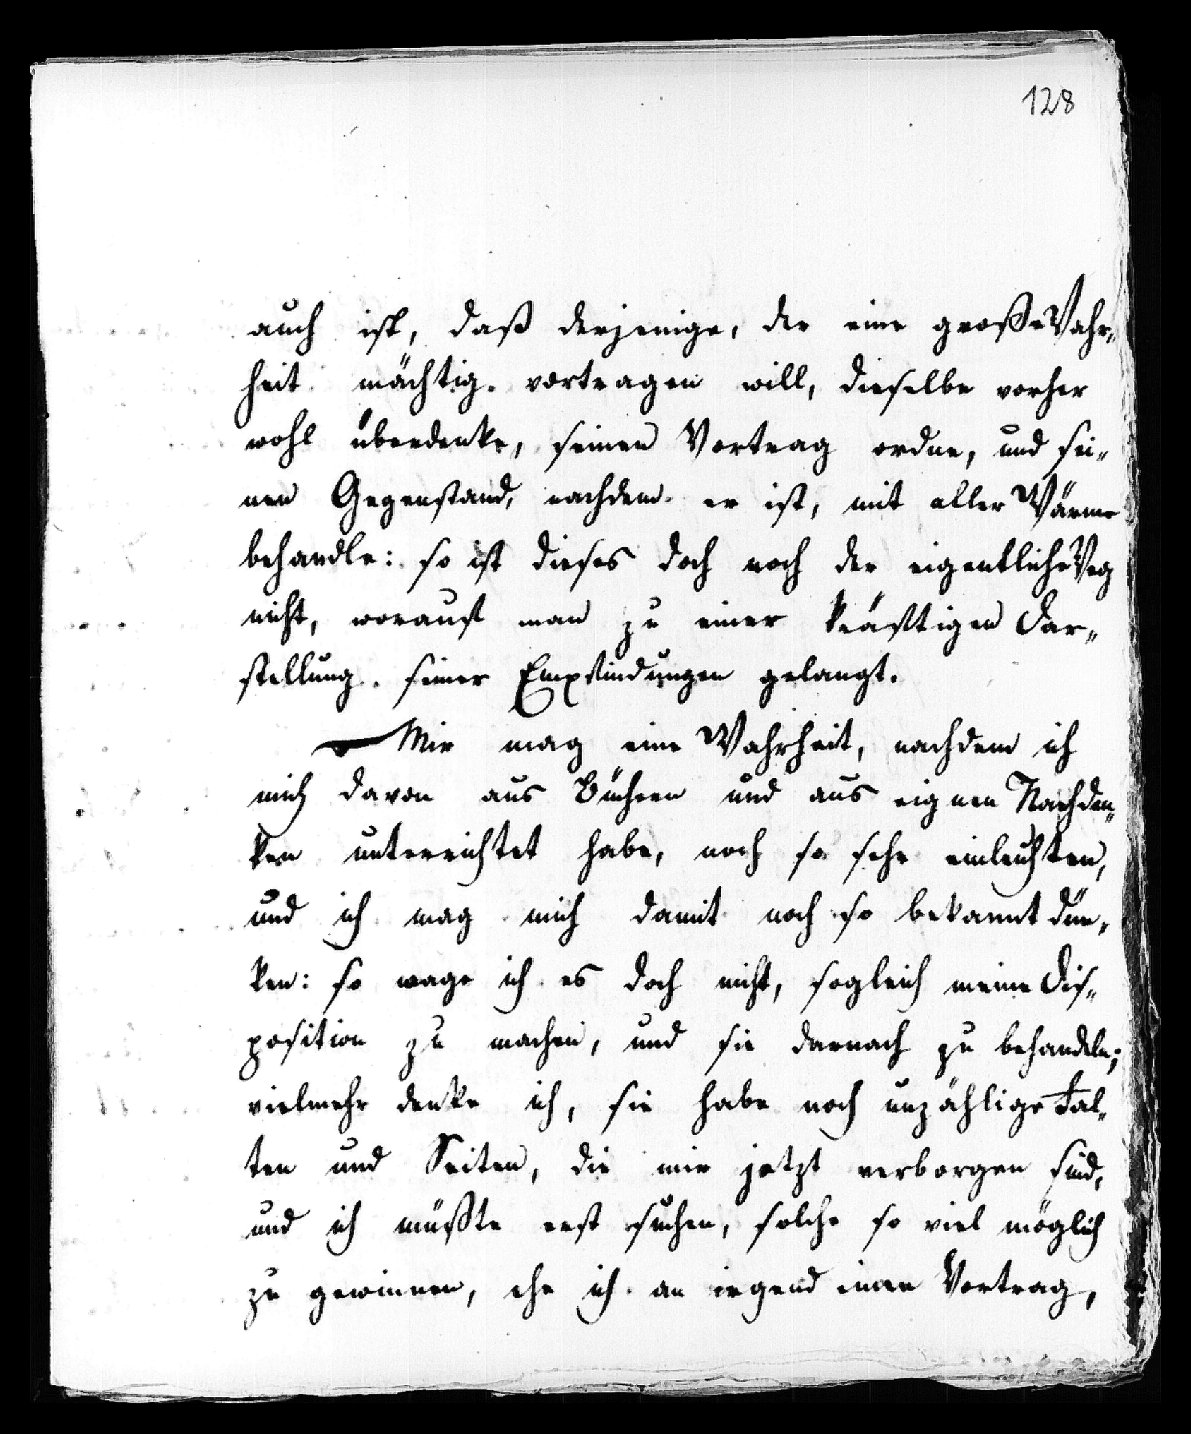 128
auch ist, daß derjenige, der eine große Wahr„
heit mächtig vortragen will, dieselbe vorher
wohl überdenke, seinen Vortrag ordne, und sei„
nen Gegenstand, nachdem er ist, mit aller Wärme
behandle: so ist dieses doch noch der eigentliche Weg
nicht, worauf man zu einer kräftigen Dar„
stellung seiner Empfindungen gelangt.
Mir mag eine Wahrheit, nachdem ich
mich davon aus Büchern und aus eignen Nachden„
ken unterrichtet habe, noch so sehr einleuchten,
und ich mag mich damit noch so bekannt dün„
ken: so wage ich es doch nicht, sogleich meine Dis„
position zu machen, und sie darnach zu behandeln;
vielmehr denke ich, sie habe noch unzählige Fal„
ten und Seiten, die mir jetzt verborgen sind,
und ich müßte erst suchen, solche so viel möglich
zu gewinnen, ehe ich an irgend einen Vortrag,